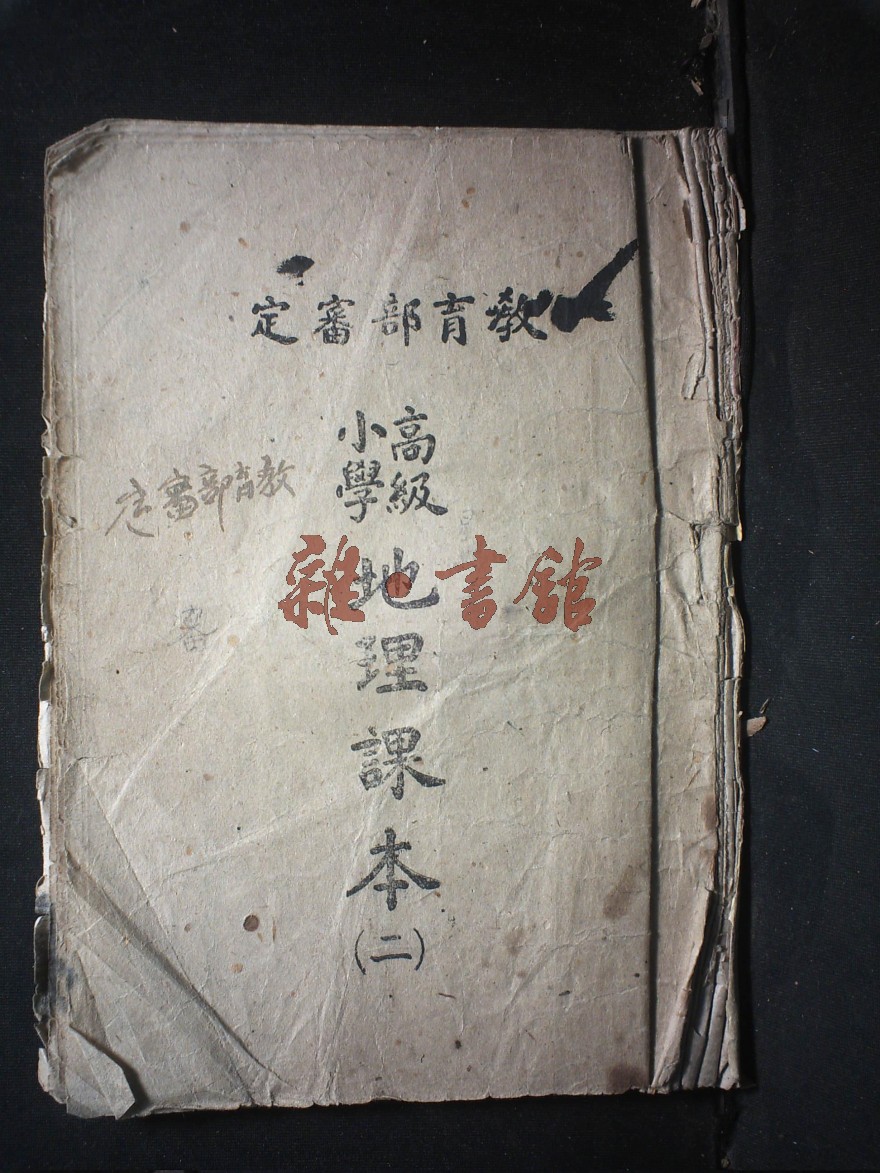 教育部審定
高級
小學
地理課本
(二)
教育部審定
審
雜·書館